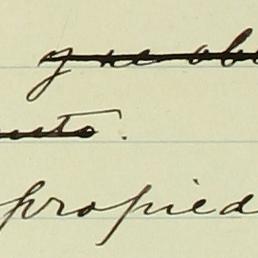 y se ob
nto.
propied